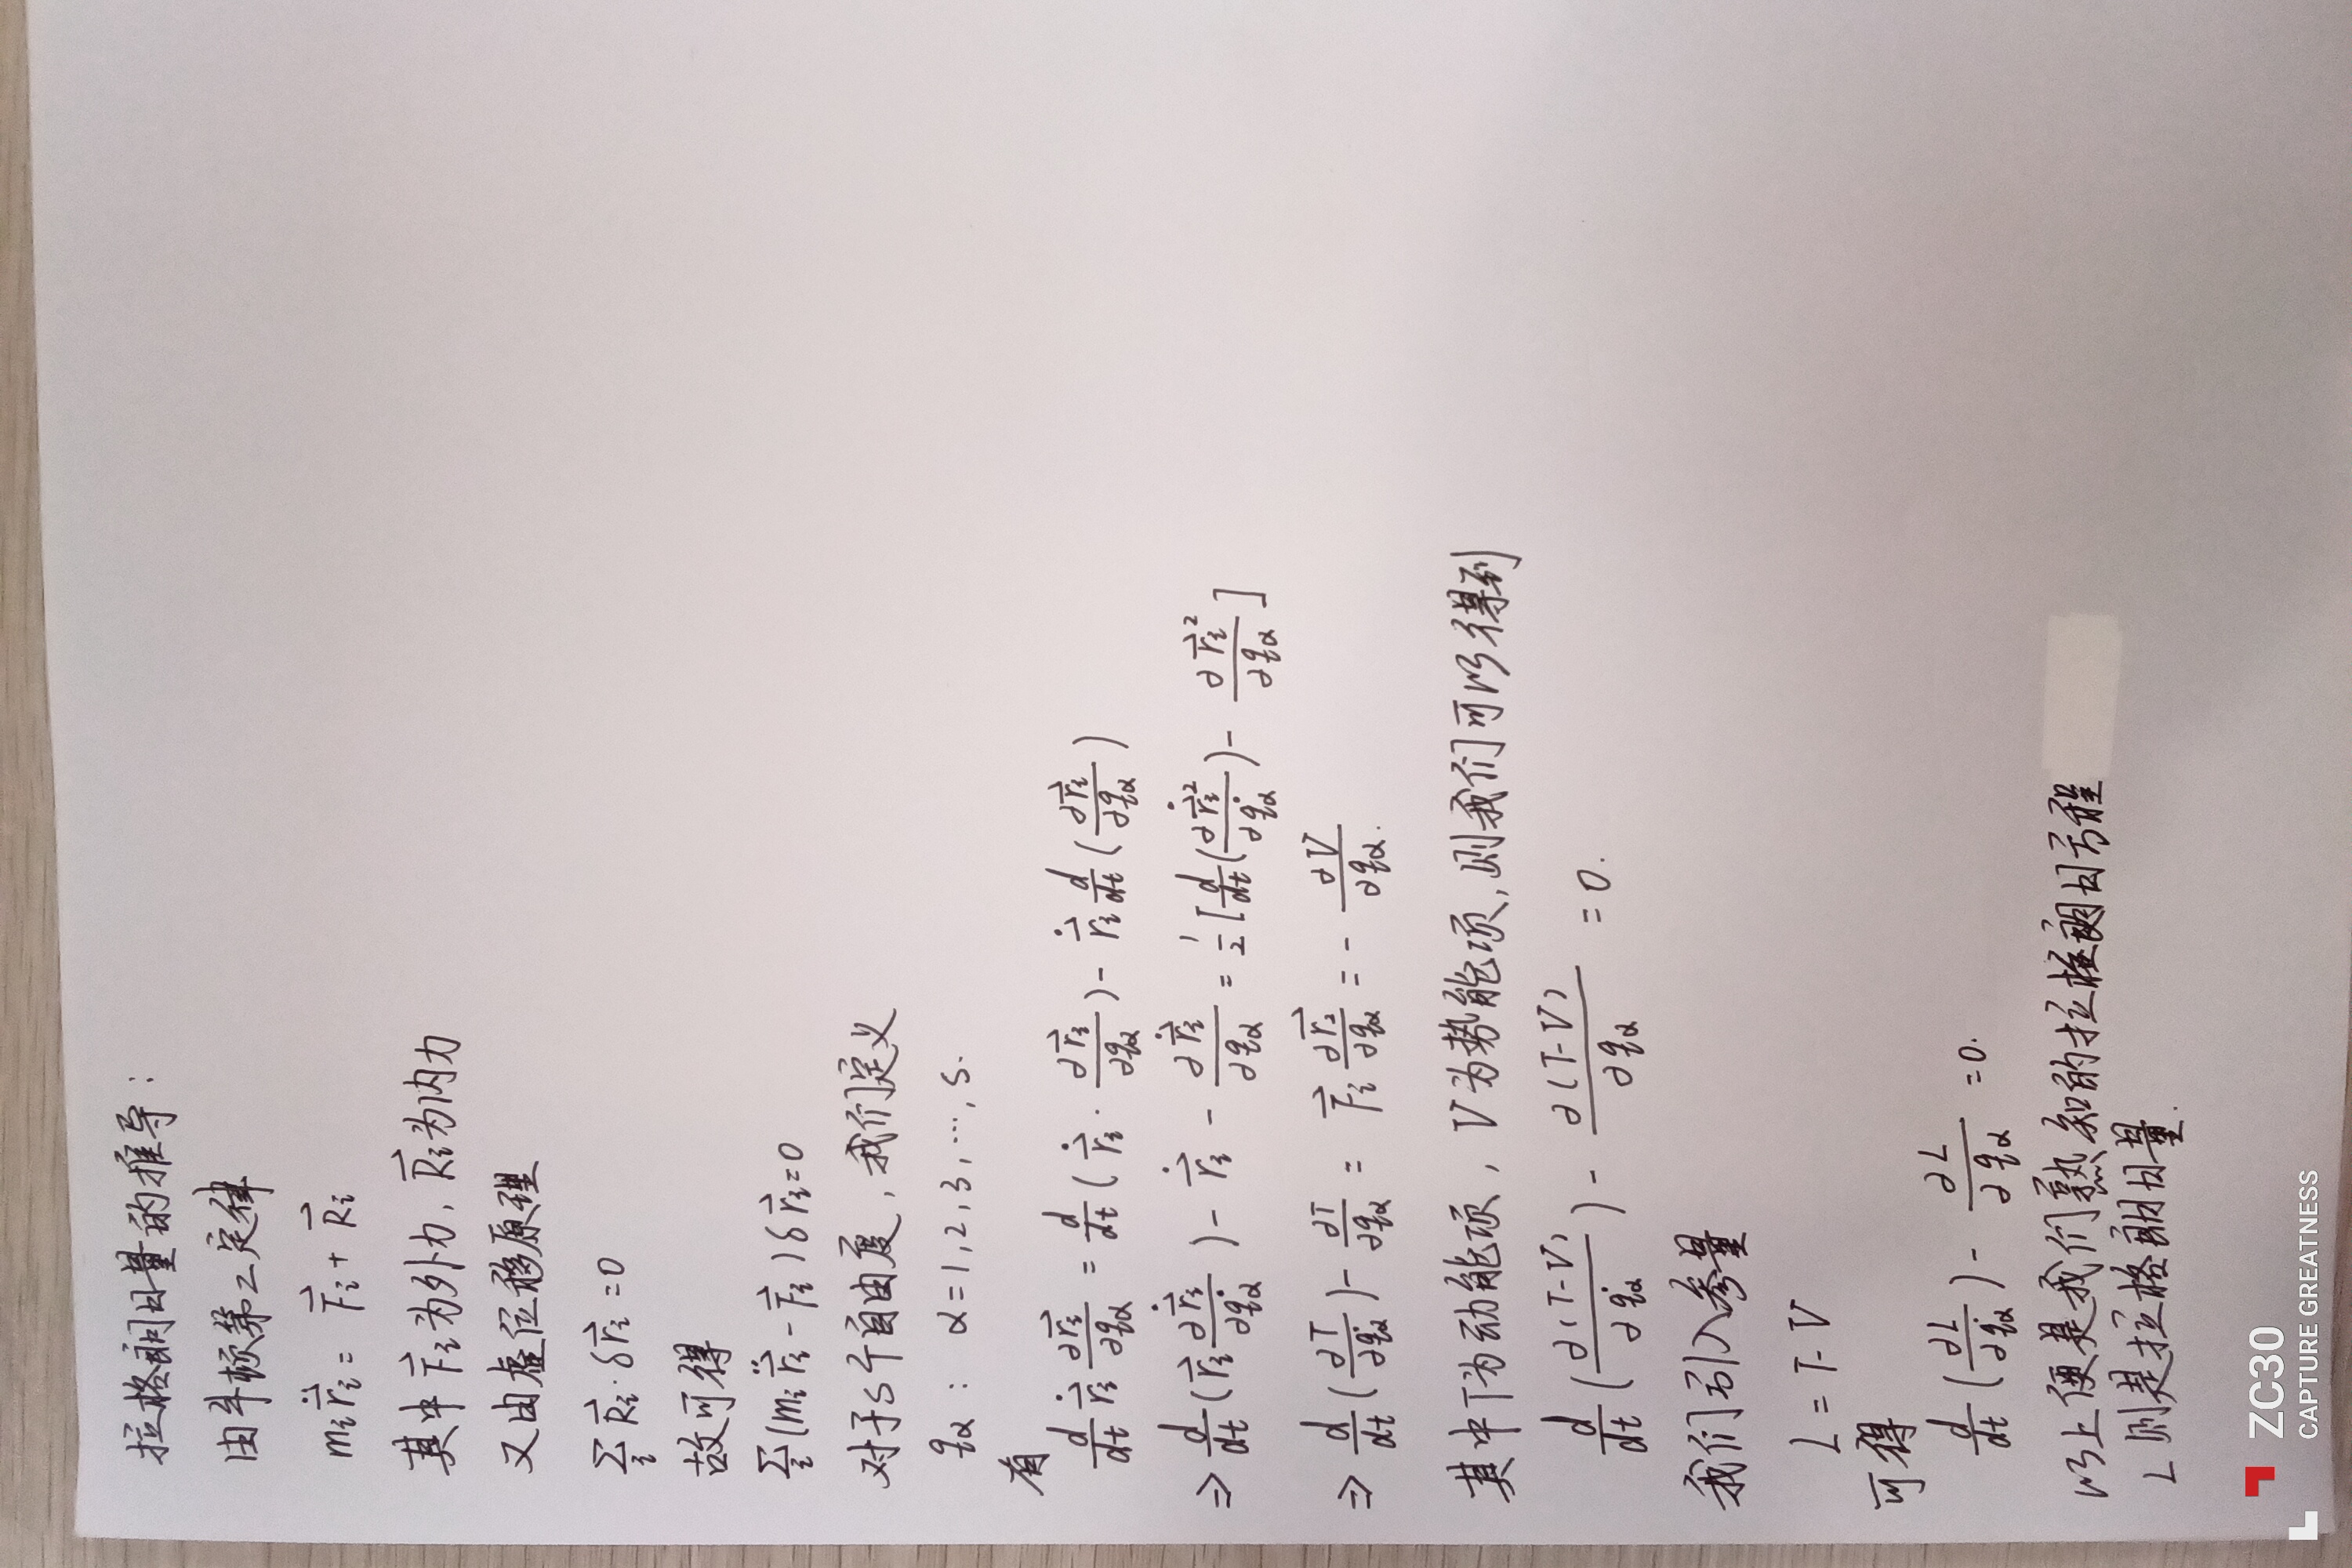 拉格朗日量的推导：
由牛顿第二定律
$m_i\ddot{\vec{r}}_i = \vec{F}_i + \vec{R}_i$
其中 $\vec{F}_i$ 为外力，$\vec{R}_i$ 为内力
又由虚位移原理
$\sum_i \vec{R}_i \cdot \delta\vec{r}_i = 0$
故可得
$\sum_i (m_i\ddot{\vec{r}}_i - \vec{F}_i)\delta\vec{r}_i = 0$
对于S个自由度，我们定义
$q_\alpha : \alpha = 1, 2, 3, \cdots, s.$
有
$\frac{d}{dt}\dot{\vec{r}}_i\frac{\partial\vec{r}_i}{\partial q_\alpha} = \frac{d}{dt}(\dot{\vec{r}}_i \cdot \frac{\partial\vec{r}_i}{\partial q_\alpha}) - \dot{\vec{r}}_i\frac{d}{dt}(\frac{\partial\vec{r}_i}{\partial q_\alpha})$
$\Rightarrow \frac{d}{dt}(\dot{\vec{r}}_i\frac{\partial\dot{\vec{r}}_i}{\partial\dot{q}_\alpha}) - \dot{\vec{r}}_i - \frac{\partial\dot{\vec{r}}_i}{\partial q_\alpha} = \frac{1}{2}[\frac{d}{dt}(\frac{\partial\dot{\vec{r}}_i^2}{\partial\dot{q}_\alpha}) - \frac{\partial\dot{\vec{r}}_i^2}{\partial q_\alpha}]$
$\Rightarrow \frac{d}{dt}(\frac{\partial T}{\partial\dot{q}_\alpha}) - \frac{\partial T}{\partial q_\alpha} = \vec{F}_i\frac{\partial\vec{r}_i}{\partial q_\alpha} = -\frac{\partial V}{\partial q_\alpha}.$
其中T为动能项，V为势能项，则我们可以得到
$\frac{d}{dt}(\frac{\partial(T-V)}{\partial\dot{q}_\alpha}) - \frac{\partial(T-V)}{\partial q_\alpha} = 0.$
我们引入参量
$L = T - V$
可得
$\frac{d}{dt}(\frac{\partial L}{\partial\dot{q}_\alpha}) - \frac{\partial L}{\partial q_\alpha} = 0.$
以上便是我们熟知的拉格朗日方程
L则是拉格朗日量.
ZC30
CAPTURE GREATNESS